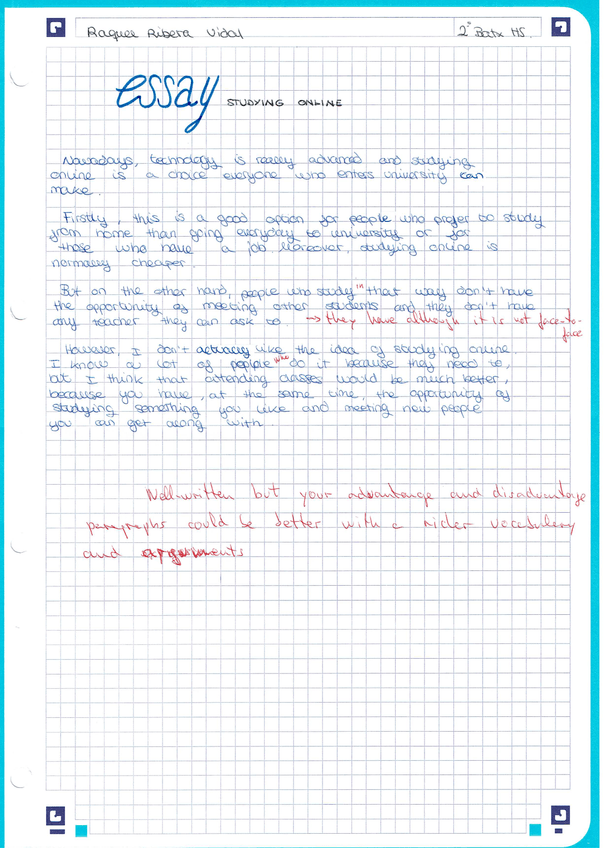 Raquel Ribera Vidal 2º Batx HS.
essay STUDYING ONLINE
Nowadays, technology is really advanced and studying
online is a choice everyone who enters university can
make.
Firstly, this is a good option for people who prefer to study
from home than going everyday to university or for
those who have a job. Moreover, studying online is
normally cheaper.
But on the other hand, people who study in that way don't have
the opportunity of meeting other students and they don't have
any teacher they can ask to. → they have although it is not face-to-
face
However, I don't actually like the idea of studying online.
I know a lot of people who do it because they need to,
but I think that attending classes would be much better,
because you have, at the same time, the opportunity of
studying something you like and meeting new people
you can get along with.
Well-written but your advantange and disadvantage
paragraphs could be better with a richer vocabulary
and arguments